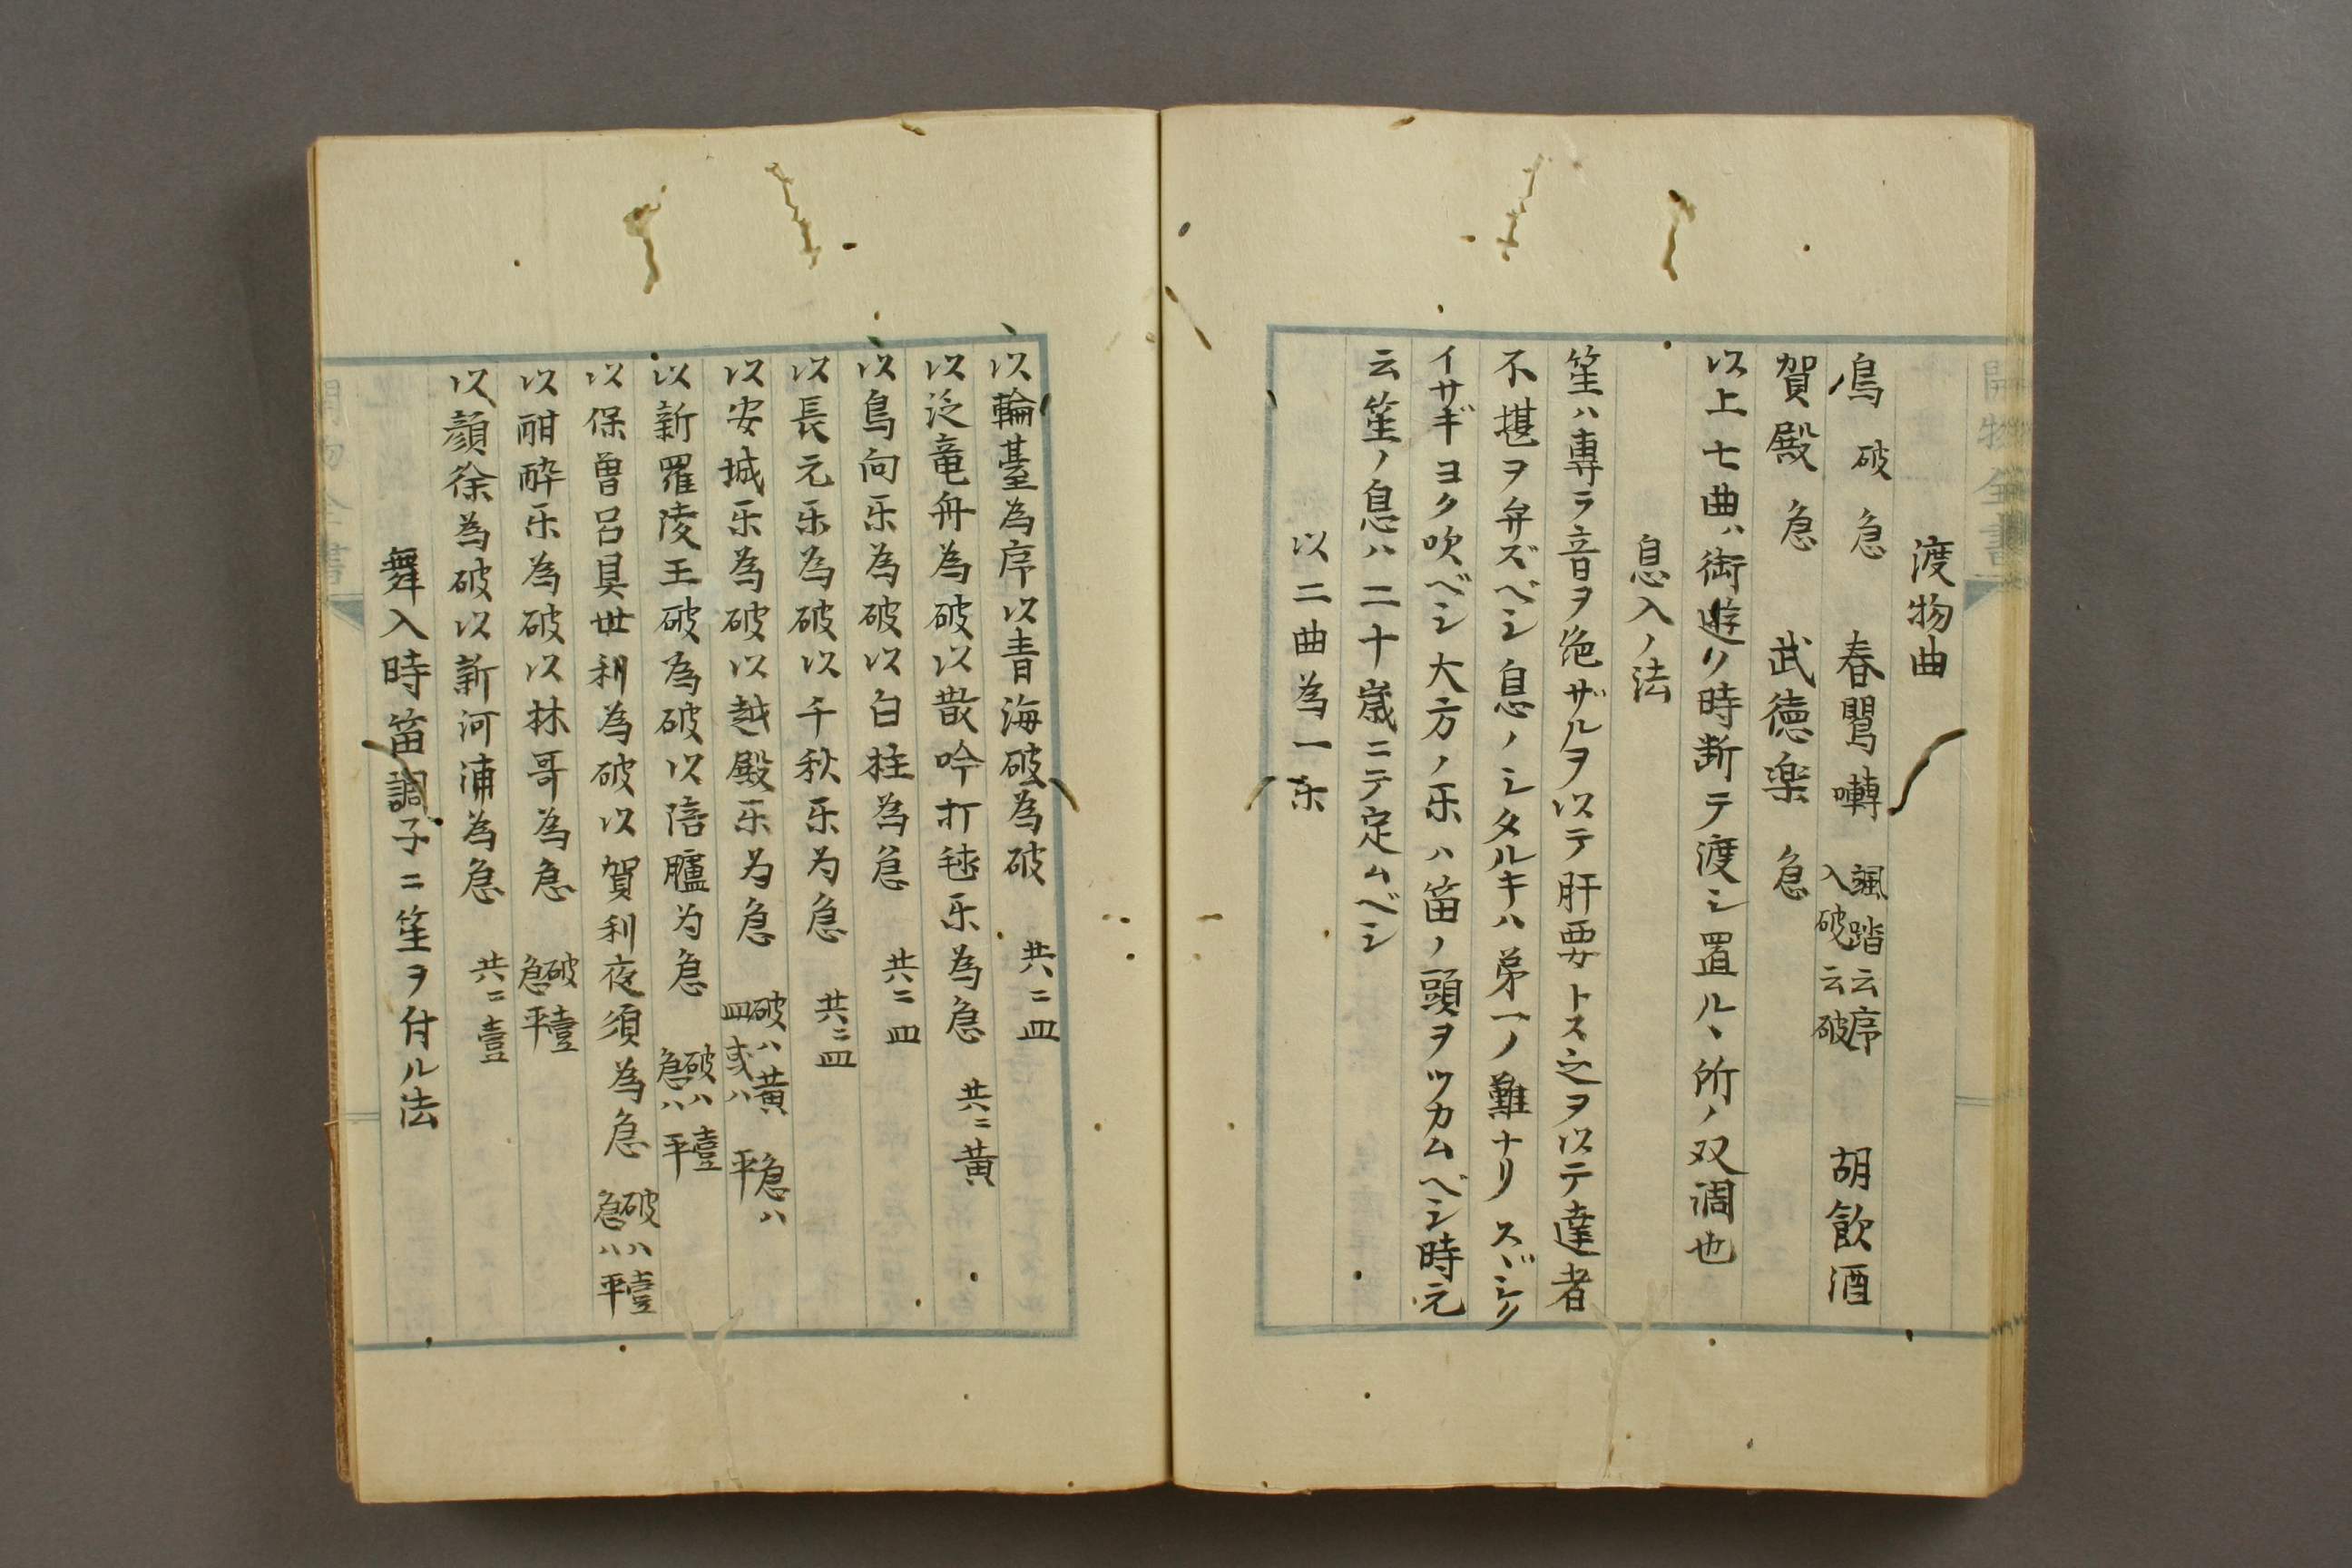 渡物曲
鳥 破 急 春鶯囀 颯踏云序 入破云破 胡飲酒
賀殿 急 武徳楽 急
以上七曲ハ街遊リ時断テ渡シ置ルヽ所ノ双調也
息入ノ法
笙ハ専ラ音ヲ絶ザルヲ以テ肝要トス之ヲ以テ達者
不堪ヲ弁ズベシ息ノシタルキハ第一ノ難ナリスヾシク
イサギヨク吹ベシ大方ノ乐ハ笛ノ頭ヲツカムベシ時元
云笙ノ息ハ二十歳ニテ定ムベシ
以二曲為一乐
以輪臺為序以青海破為破 共ニ皿
以泛竜舟為破以散吟打毬乐為急 共ニ黄
以鳥向乐為破以白柱為急 共ニ皿
以長元乐為破以千秋乐为急 共ニ皿
以安城乐為破以越殿乐为急 破ハ黄 皿或ハ 急ハ 平
以新羅陵王破為破以陪臚为急 破ハ壹 急ハ平
以保曽呂具世利為破以賀利夜須為急 破ハ壹 急ハ平
以酣酔乐為破以林哥為急 破壹 急平
以顔徐為破以新河浦為急 共ニ壹
舞入時笛調子ニ笙ヲ付ル法